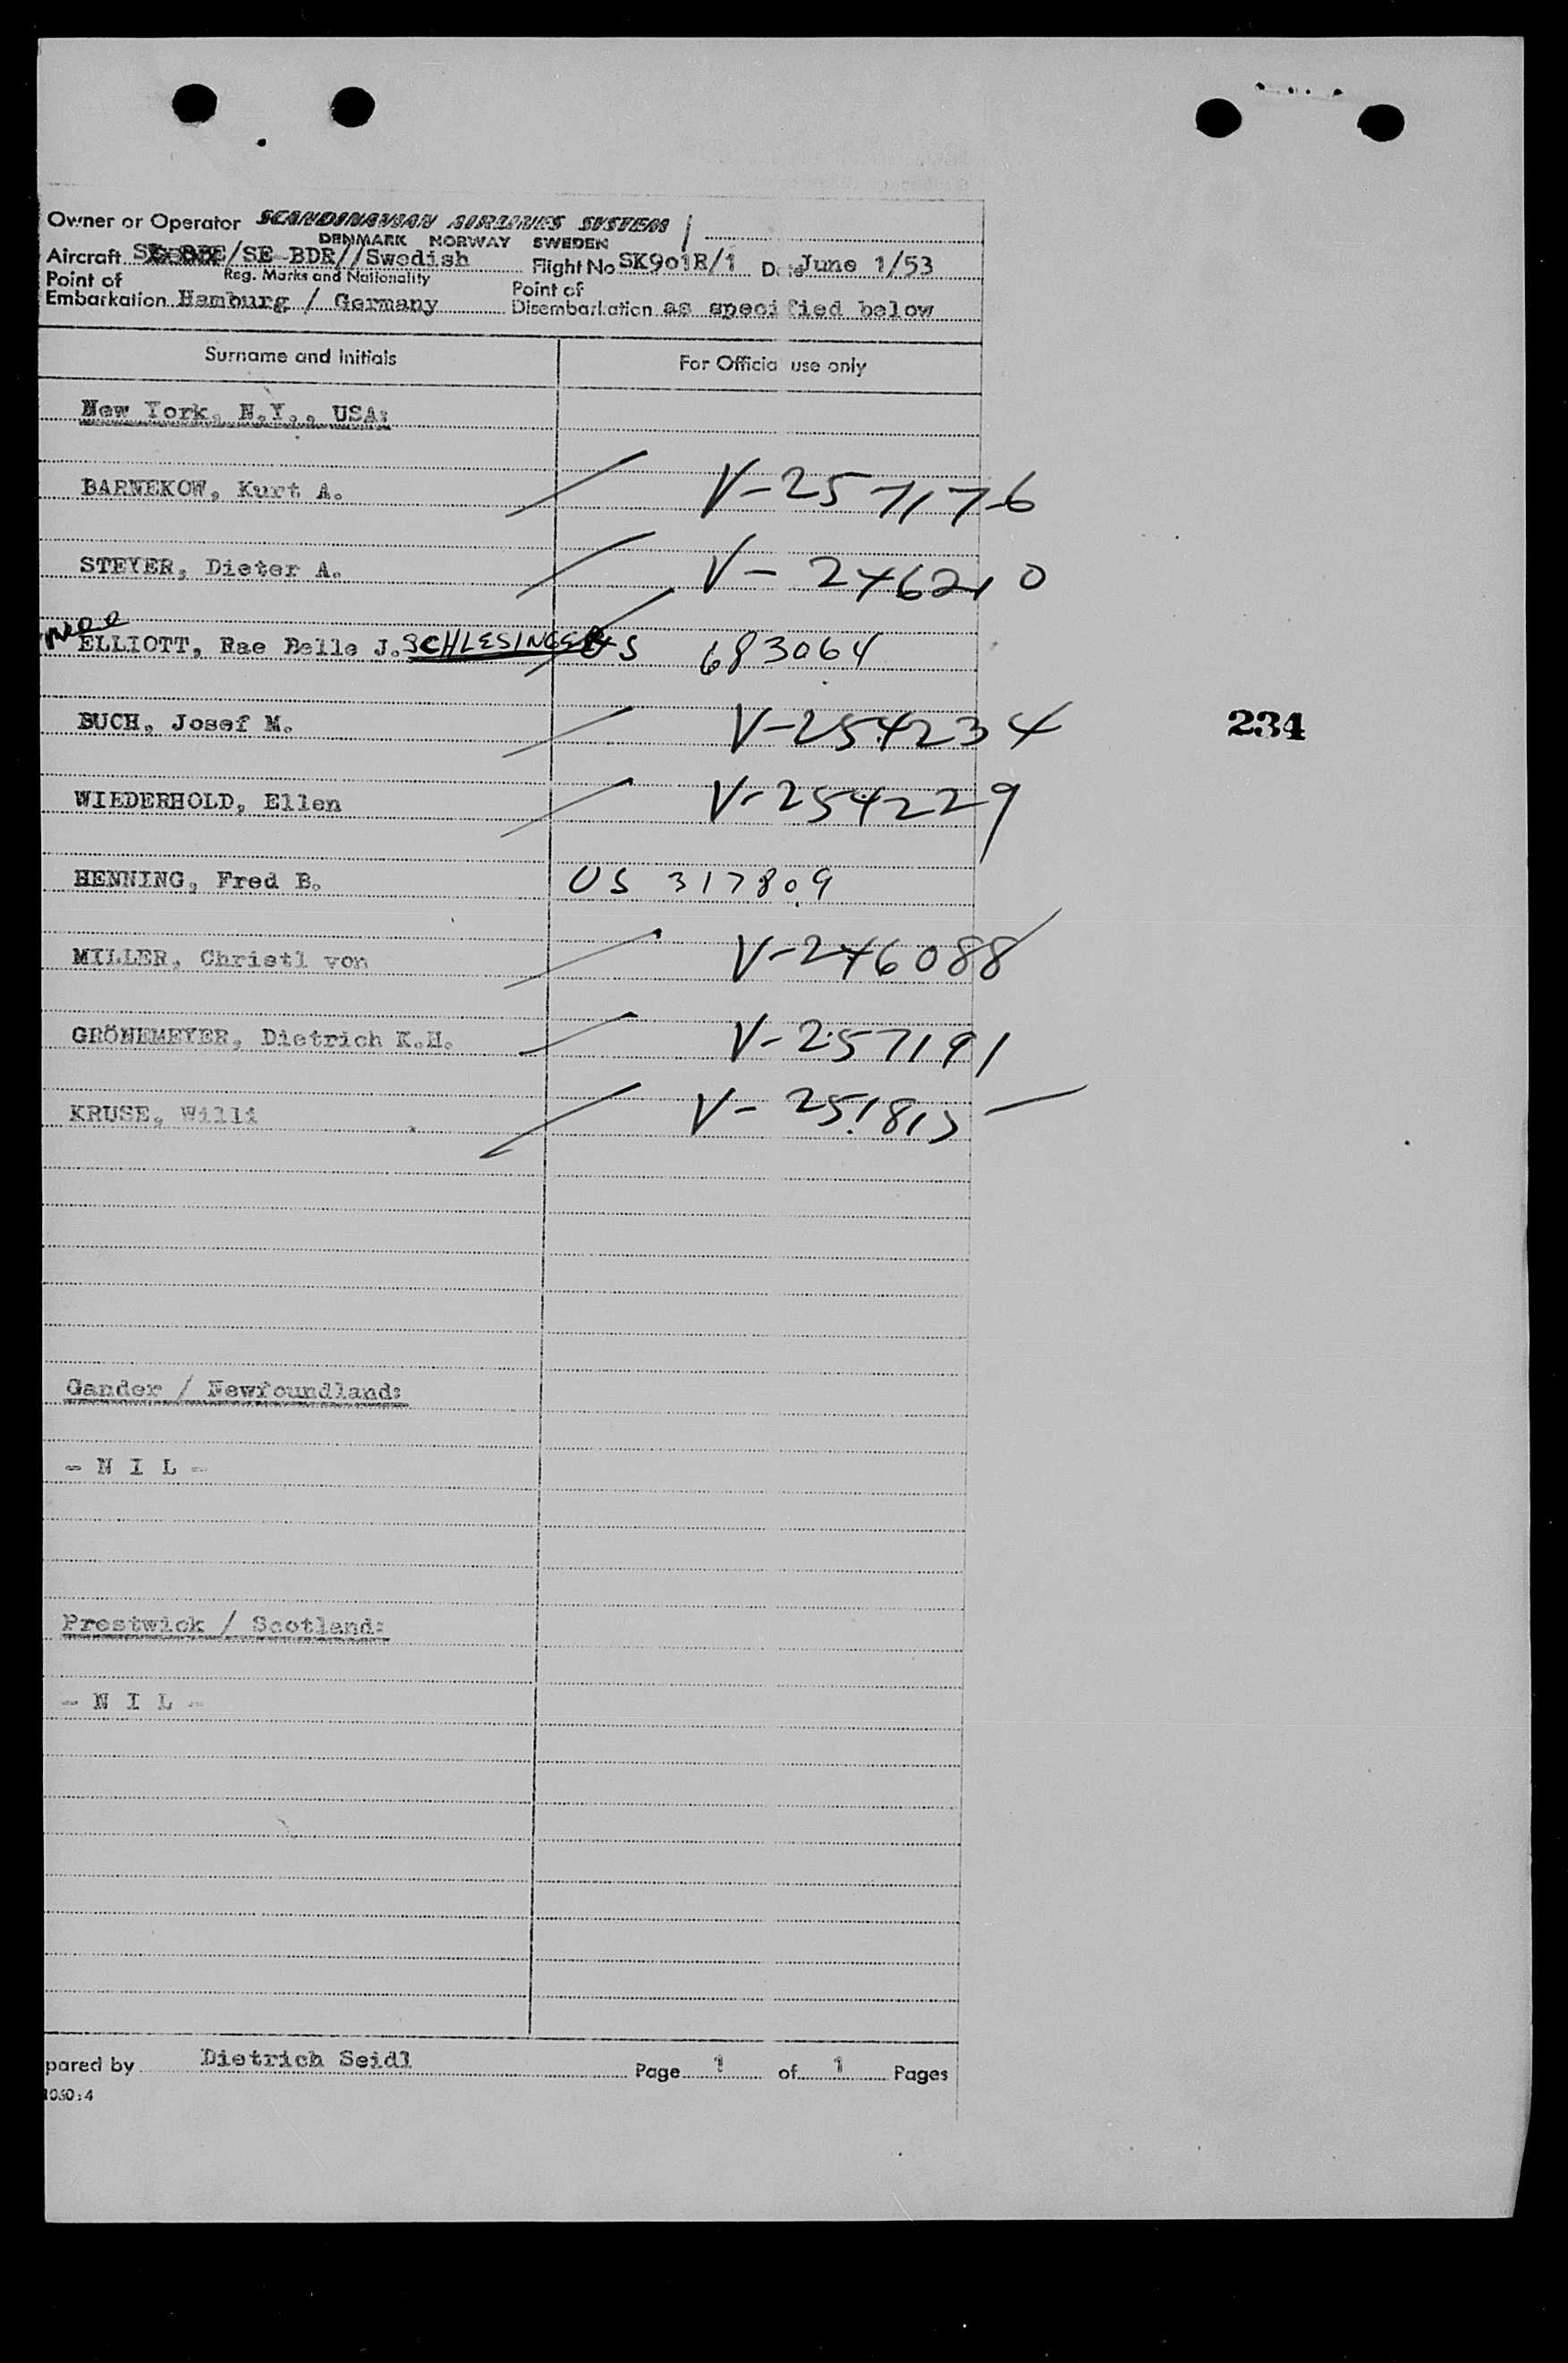 Owner or Operator SCANDINAVIAN AIRLINES SYSTEM
DENMARK NORWAY SWEDEN
Aircraft /SE-BDR//Swedish Flight No SK901R/1 Date June 1/53
Reg. Marks and Nationality
Point of Embarkation Hamburg / Germany Point of Disembarkation as specified below
Surname and Initials For Official use only
New York, N.Y., USA:
BARNEKOW, Kurt A. V-257176
STEYER, Dieter A. V-246210
ELLIOTT, Rae Belle J. SCHLESINGER US 683064
BUCH, Josef M. V-254234
234
WIEDERHOLD, Ellen V-254229
HENNING, Fred B. US 317809
MILLER, Christl von V-246088
GRÖNEMEYER, Dietrich K.H. V-257191
KRUSE, Willi V-251815
Gander / Newfoundland:
- N I L -
Prestwick / Scotland:
- N I L -
pared by Dietrich Seidl Page 1 of 1 Pages
1050:4